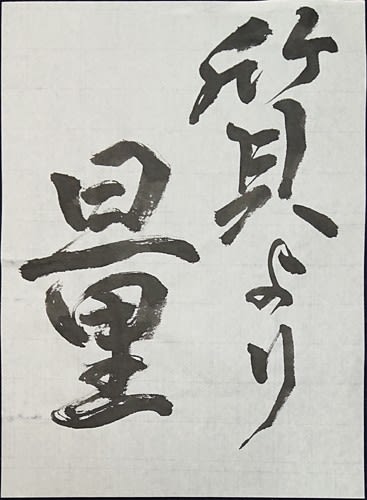 質より
量